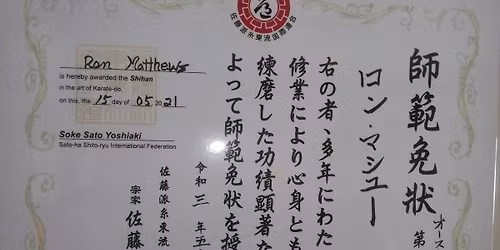 佐藤派糸東流国際連合
Ron Matthews
is hereby awarded the Shihan
in the art of Karate-do,
on this, the 15 day of 05 2021
Soke Sato Yoshiaki
Sato-ha Shito-ryu International Federation
師範免状
オース
第
ロン・マシュー
右の者、多年にわた
修業により心身とも
練磨した功績顕著な
よって師範免状を授
令和三年五
佐藤派糸東流
宗家 佐藤